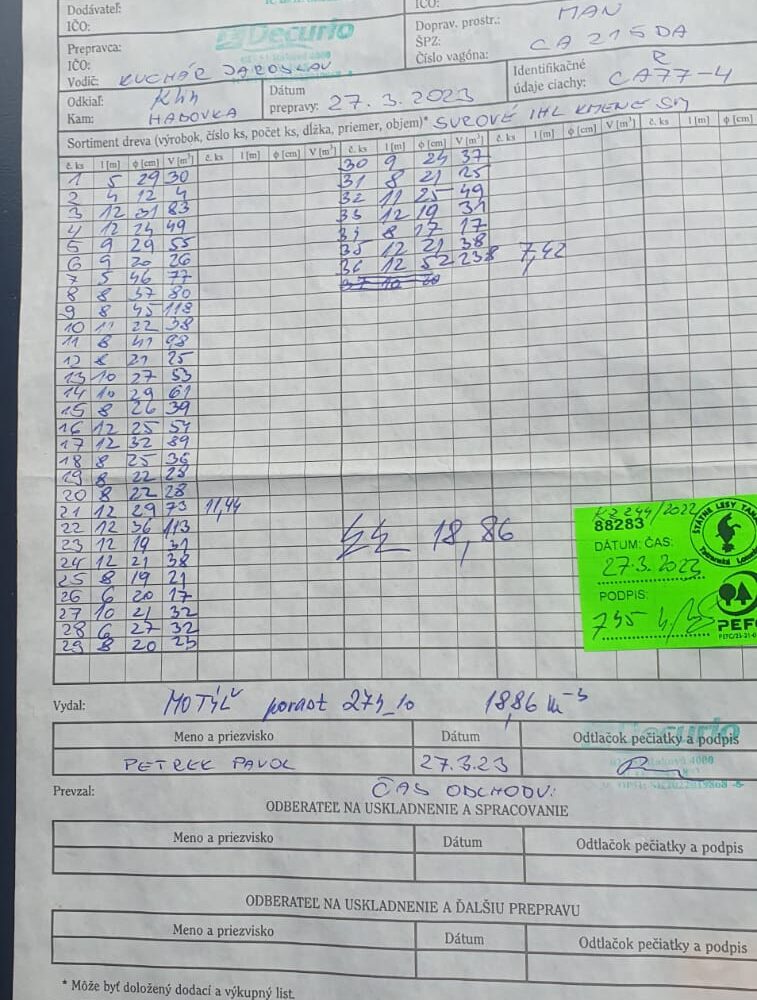 Dodávateľ:
IČO:
IČO:
Prepravca:
Decurio
IČO:
Vodič: KUCHÁR JAROSLAV
Doprav. prostr.: MAN
ŠPZ: CA 215 DA
Číslo vagóna:
Odkiaľ:
Kam: HADOVKA
Dátum
prepravy: 27. 3. 2023
Identifikačné R
údaje ciachy: CA77-4
Sortiment dreva (výrobok, číslo ks, počet ks, dĺžka, priemer, objem)* SUROVÉ IHL KMENE SM
č. ks l [m] ϕ [cm] V [m³] č. ks l [m] ϕ [cm] V [m³] č. ks l [m] ϕ [cm] V [m³] č. ks l [m] ϕ [cm] V [m³] č. ks l [m] ϕ [cm]
1 5 29 30 30 9 24 37
2 4 12 4 31 8 21 25
3 12 31 83 32 11 25 49
4 12 24 49 33 12 19 31
5 9 29 55 34 8 17 17
6 9 20 26 35 12 21 38
7 5 46 77 36 12 52 238 7,42
8 8 37 80 37 10 20
9 8 45 118
10 11 22 38
11 8 41 98
12 8 21 25
13 10 27 53
14 10 29 61
15 8 26 39
16 12 25 54
17 12 32 89
18 8 25 36
19 8 22 28
20 8 22 28
21 12 29 73 11,44
22 12 36 113
23 12 19 31
24 12 21 38
25 8 19 21
26 6 20 17
27 10 21 32
28 6 27 32
29 8 20 23
18,86
244/2022
88283
DÁTUM: ČAS:
27.3.2023
PODPIS:
745
ŠTÁTNE LESY
PEFC
Vydal: MOTÝĽ porast 274_10 18,86 m-3
Meno a priezvisko Dátum Odtlačok pečiatky a podpis
Decurio
PETREK PAVOL 27.3.23
Prevzal: ČAS ODCHODU:
ODBERATEĽ NA USKLADNENIE A SPRACOVANIE
Meno a priezvisko Dátum Odtlačok pečiatky a podpis
ODBERATEĽ NA USKLADNENIE A ĎALŠIU PREPRAVU
Meno a priezvisko Dátum Odtlačok pečiatky a podpis
* Môže byť doložený dodací a výkupný list.